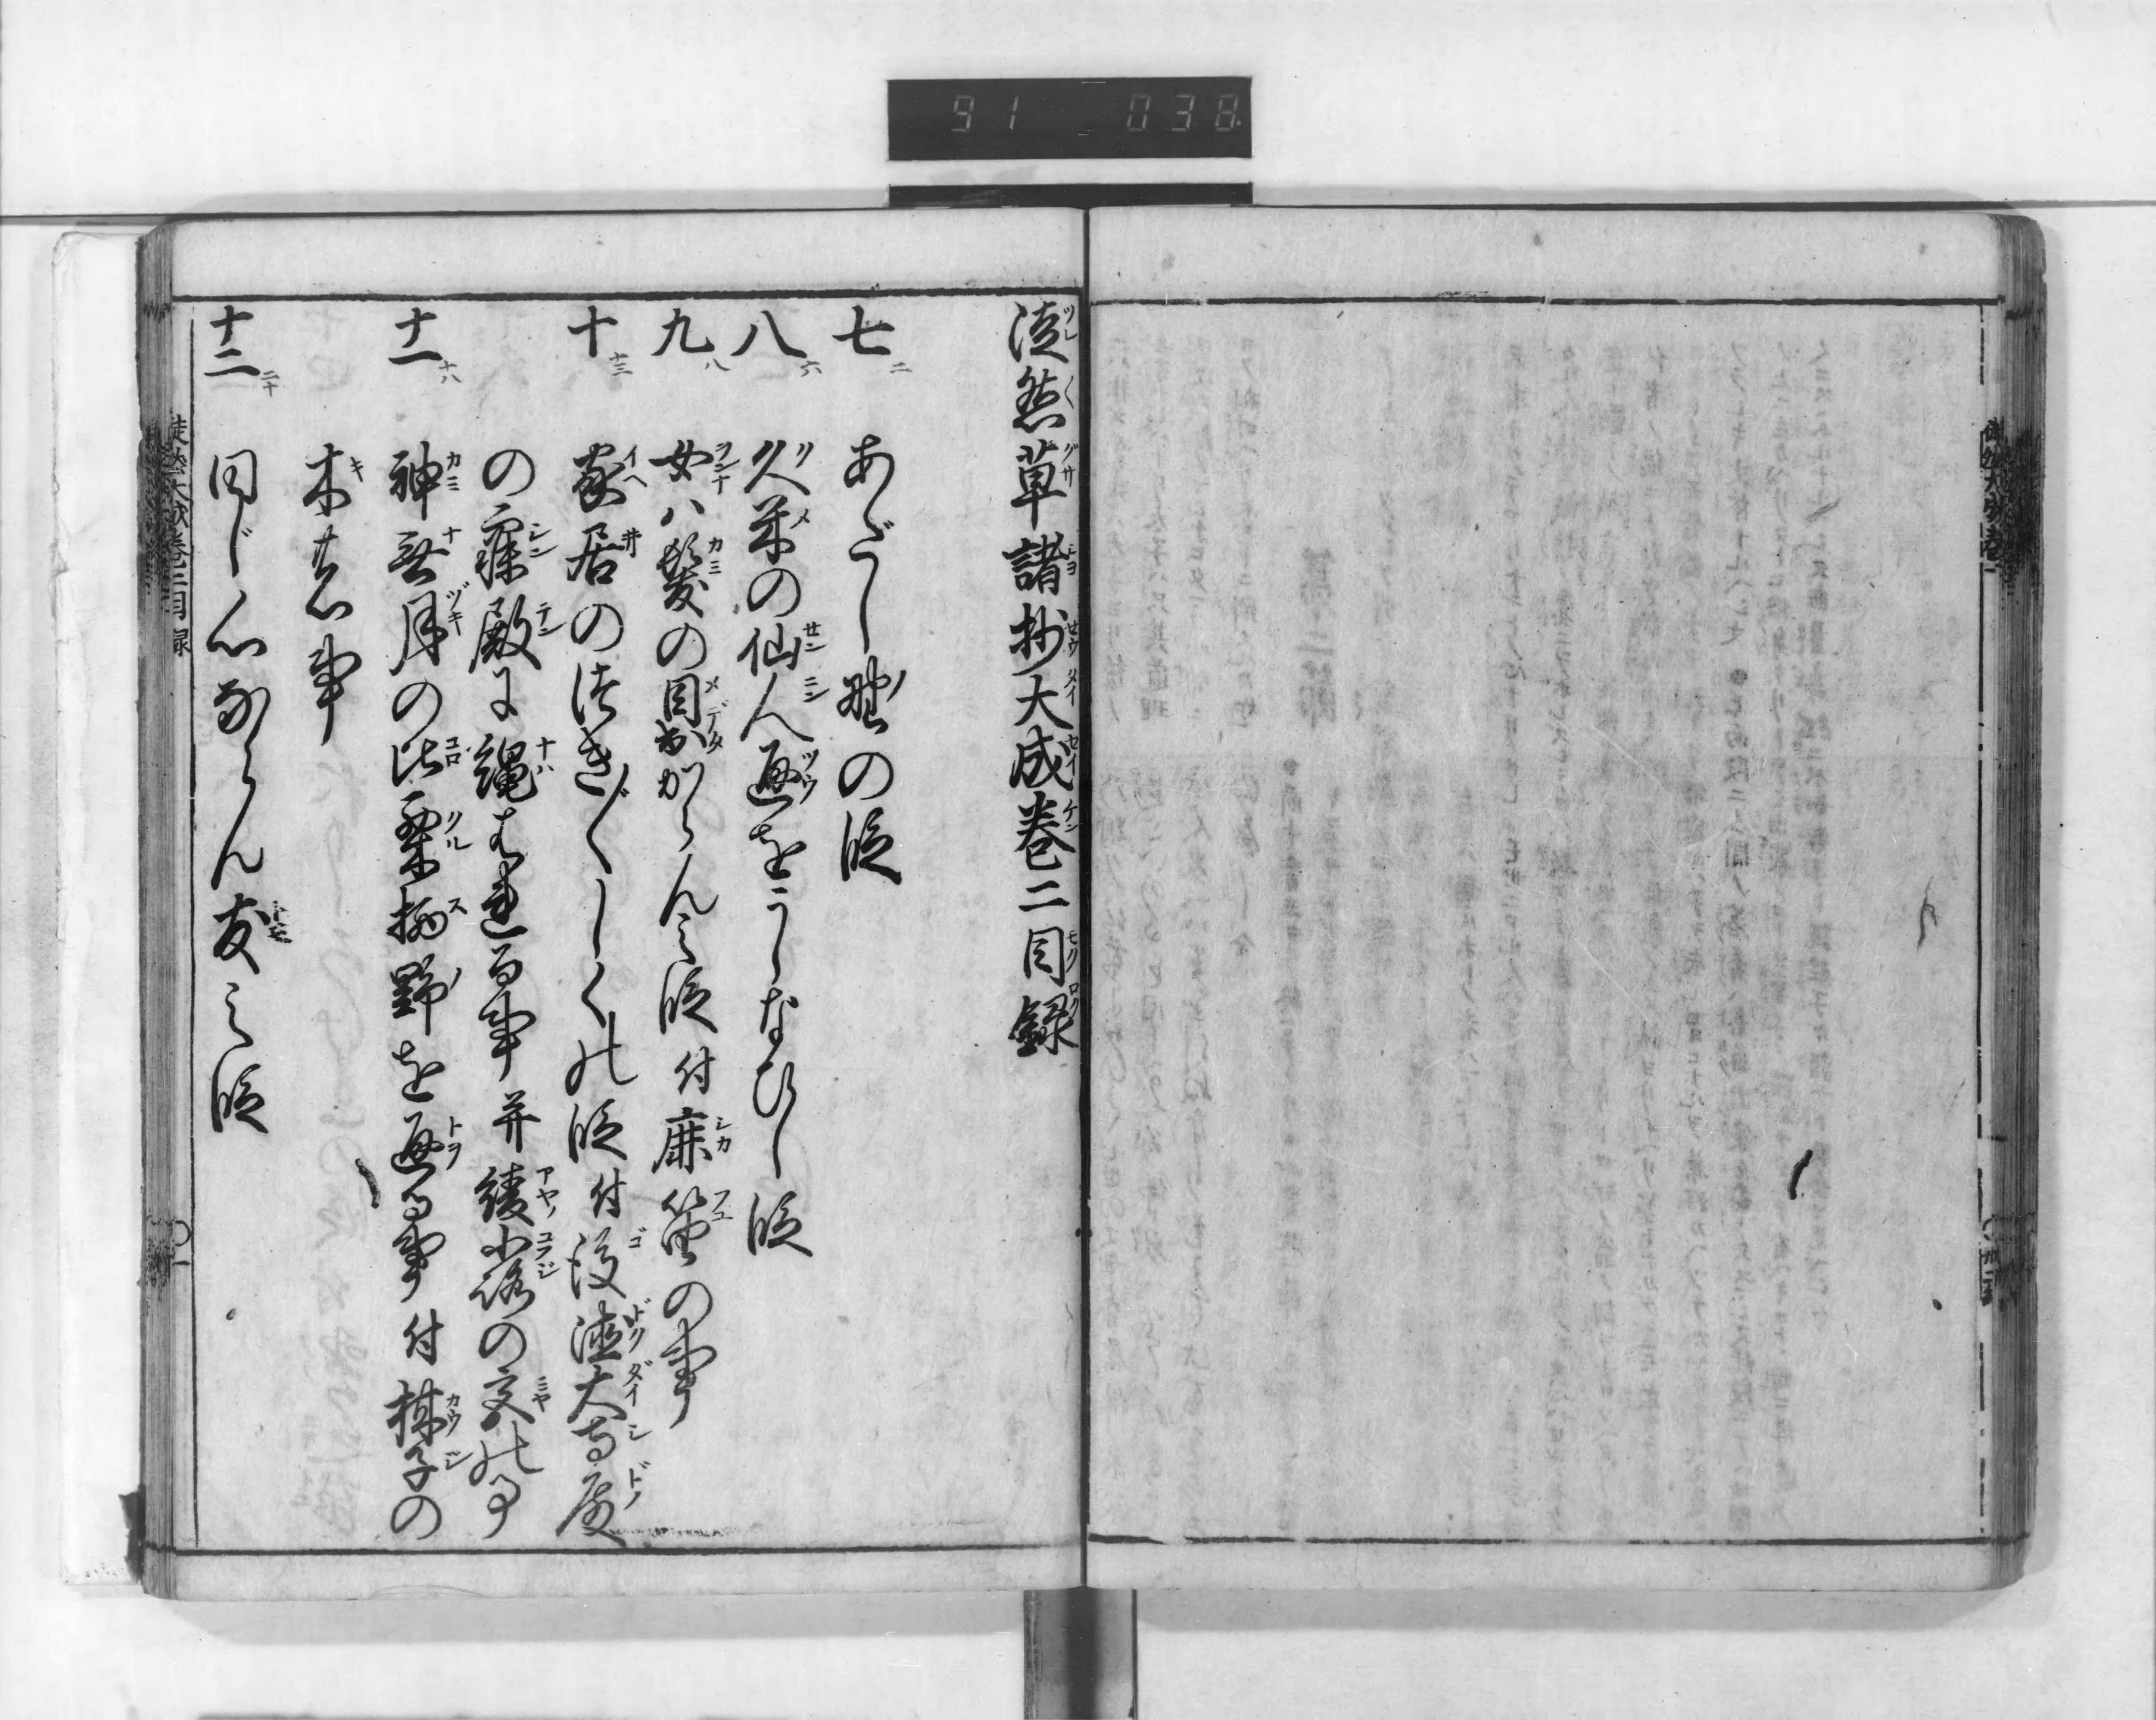 91 038
徒然草諸抄大成巻二目録
七 二 あだし野の段
八 六 久米の仙人通をうしなひし段
九 八 女ハ髪の目出からんこそ段 付 鹿笛の事
十 十三 家居のつき〴〵しくの段 付 後徳大寺殿
の寝殿に縄はる事 并 綾小路の宮の事
十一 十八 神無月の比栗栖野を通る事 付 柑子の
木の事
十二 二十 同じ心ならん友の段
徒然大成巻二目録 〇一